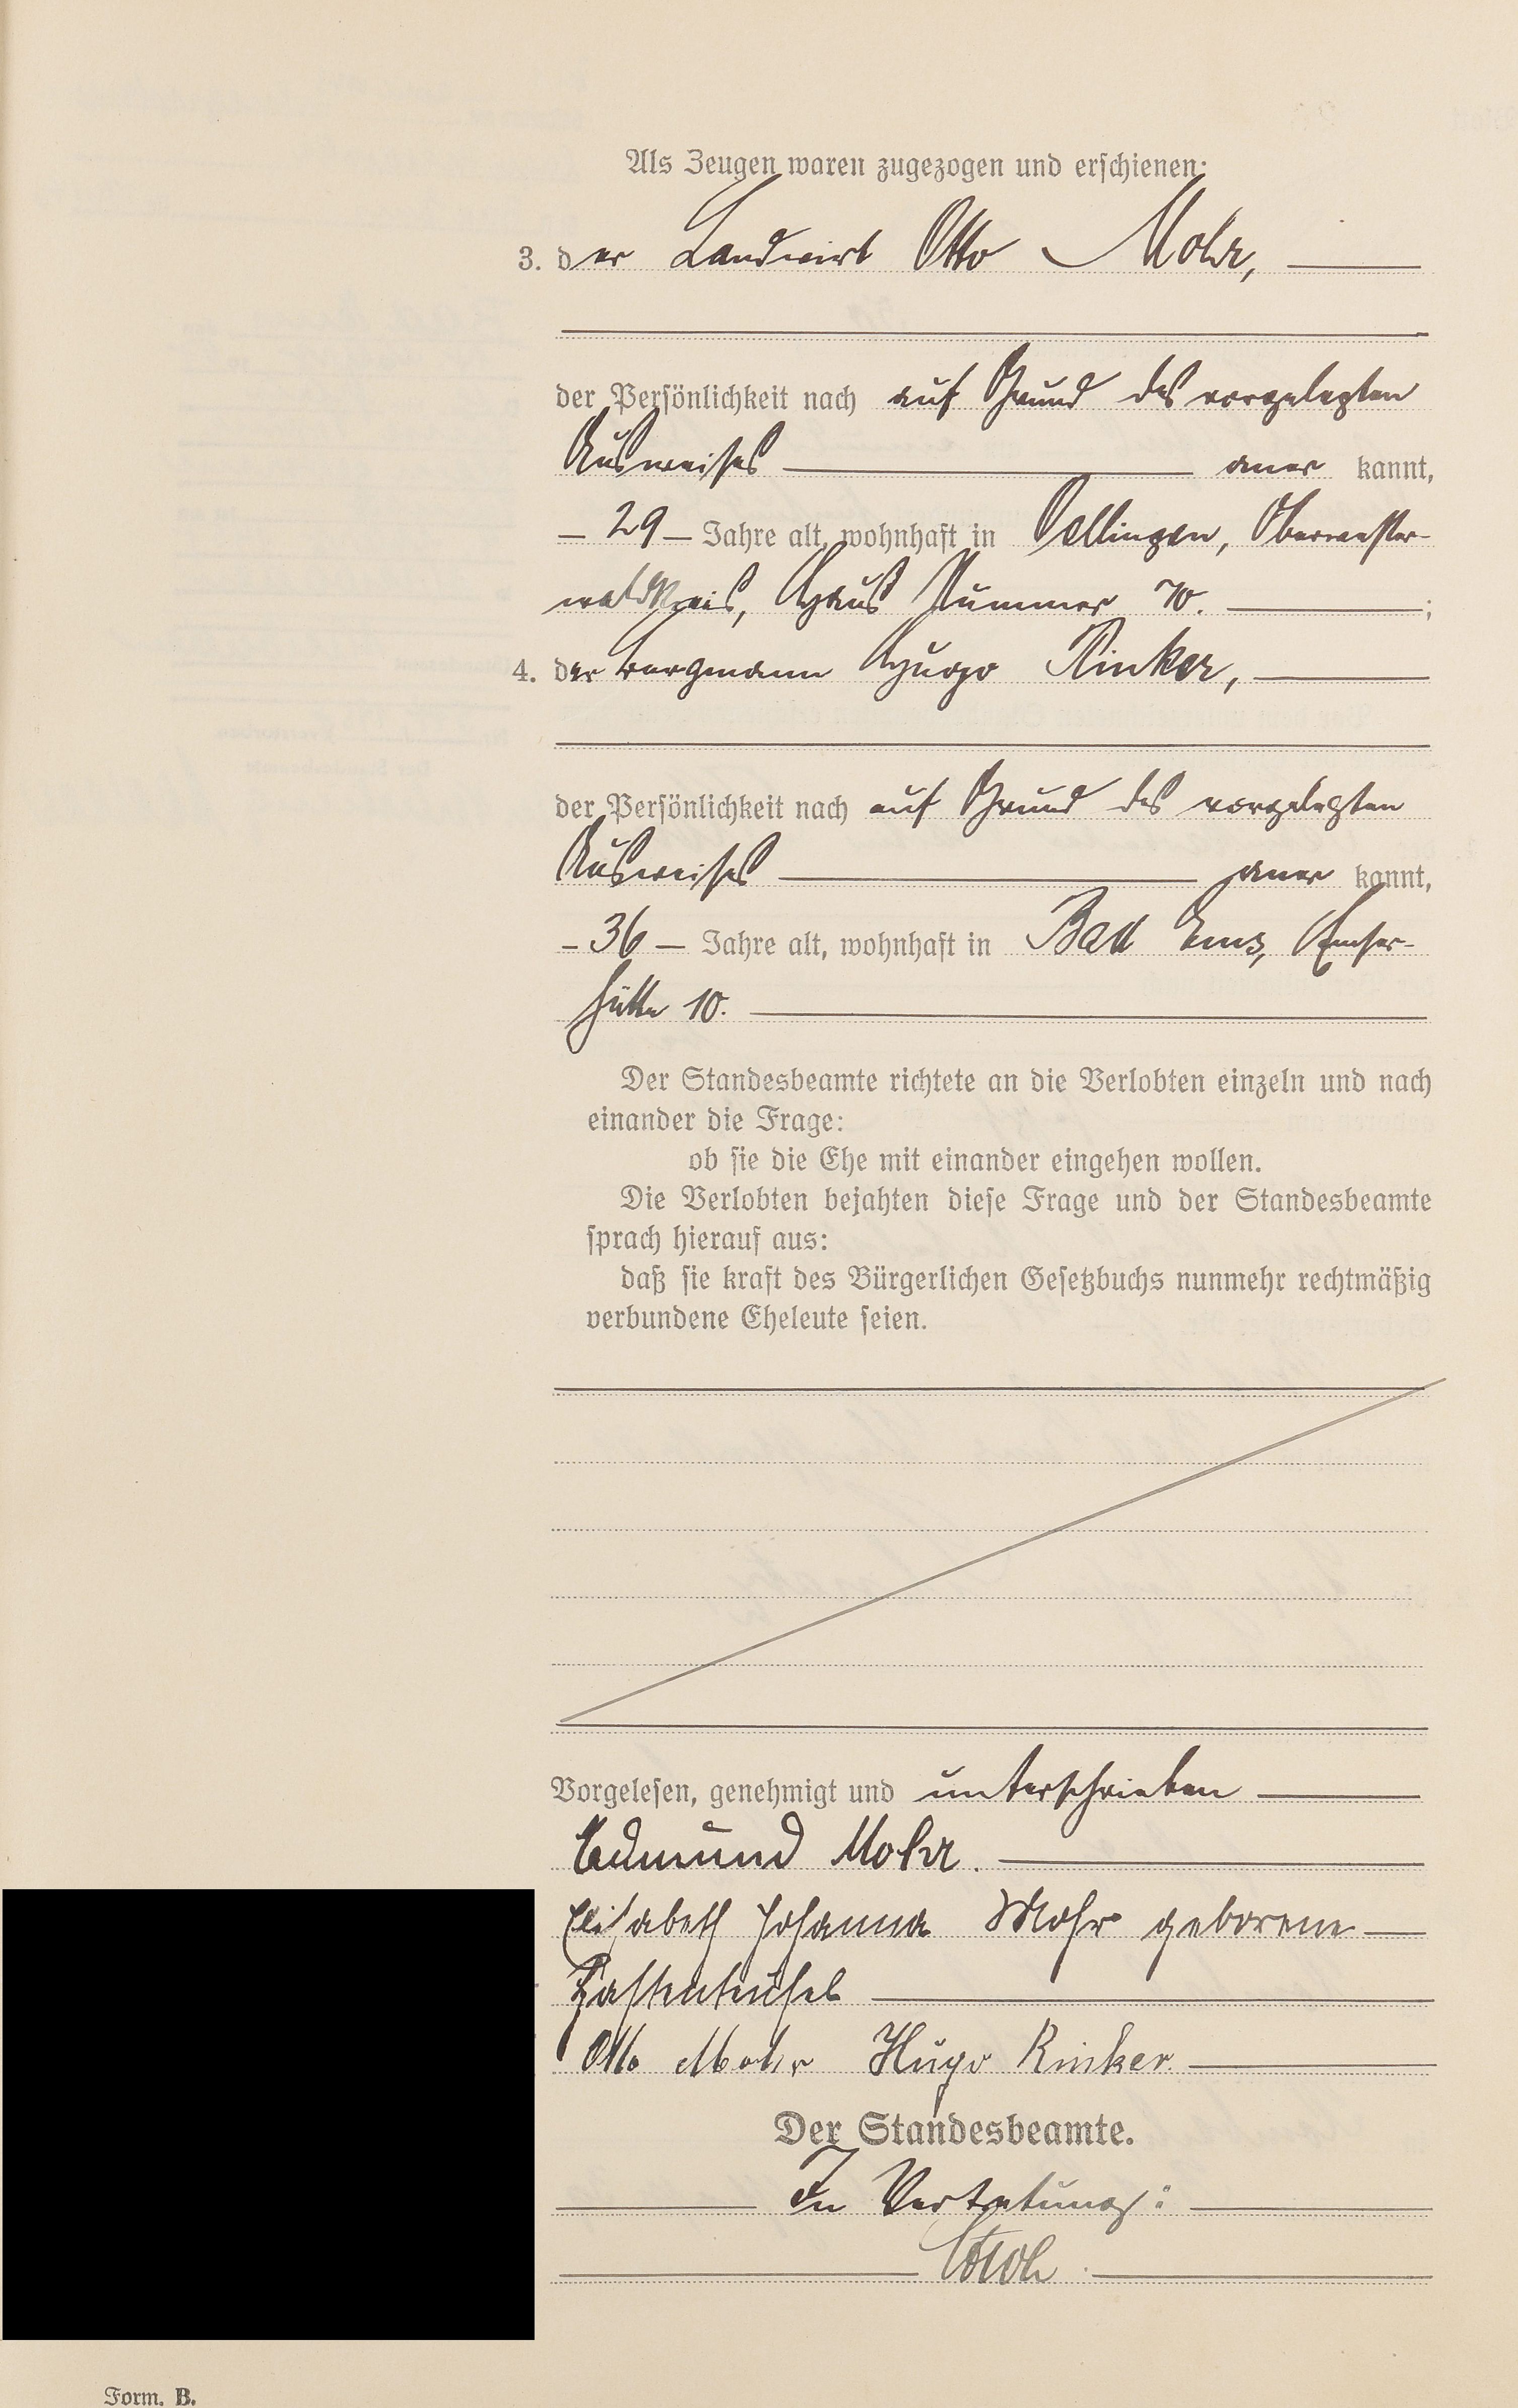 Als Zeugen waren zugezogen und erschienen:
3. der Landwirt Otto Mohr,
der Persönlichkeit nach auf Grund des vorgelegten
Ausweises aner kannt,
29 Jahre alt, wohnhaft in Oellingen, Oberwester-
waldkreis, Haus Nummer 70. ;
4. der Bergmann Hugo Rinker,
der Persönlichkeit nach auf Grund des vorgelegten
Ausweises aner kannt,
36 Jahre alt, wohnhaft in Bad Ems, Emser-
hütte 10.
Der Standesbeamte richtete an die Verlobten einzeln und nach
einander die Frage:
ob sie die Ehe mit einander eingehen wollen.
Die Verlobten bejahten diese Frage und der Standesbeamte
sprach hierauf aus:
daß sie kraft des Bürgerlichen Gesetzbuchs nunmehr rechtmäßig
verbundene Eheleute seien.
Vorgelesen, genehmigt und unterschrieben
Edmund Mohr.
Elisabeth Johanna Mohr geborene
Otto Mohr Hugo Rinker
Der Standesbeamte.
In Vertretung:
Form. B.